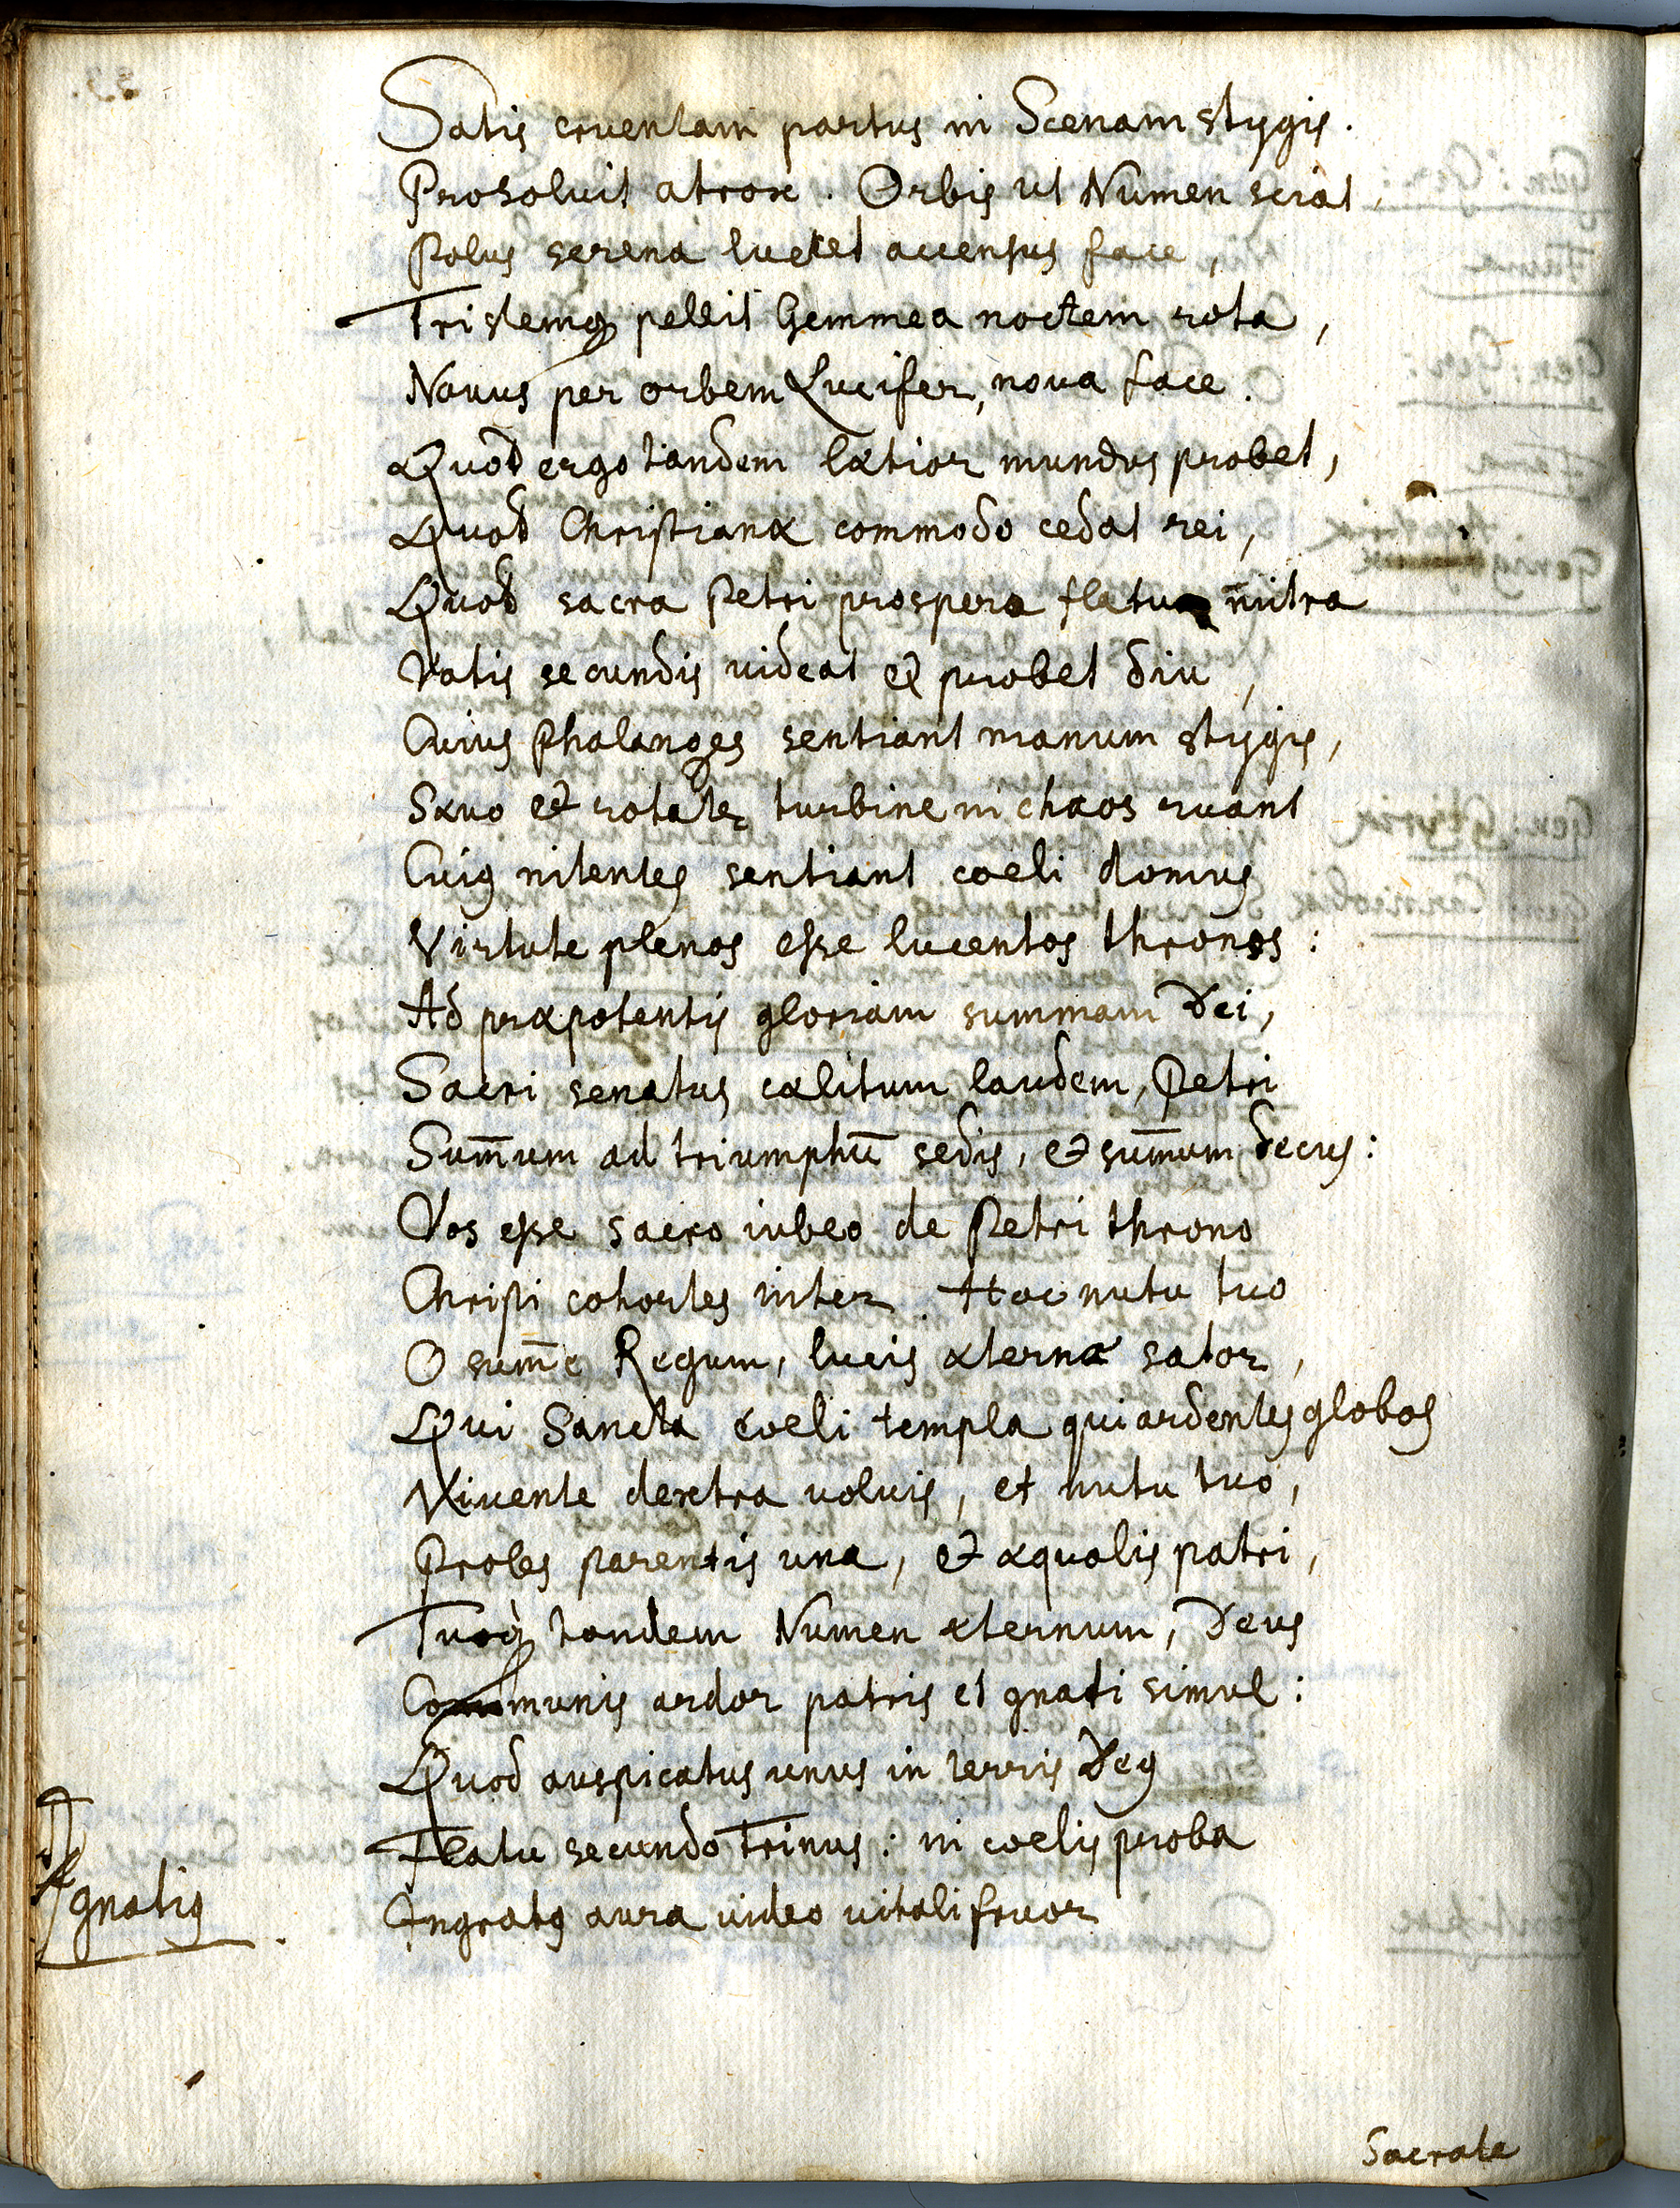 Satis cruentam partus in Scenam stygis.
Prosoluit atrox. Orbis ut Numen sciat,
Polus serena lucet accensus face,
Tristemq3 pellit Gemmea noctem rota,
Nouus per orbem Lucifer, noua face.
Quod ergo tandem lætior mundus probet,
Quod Christianæ commodo cedat rei,
Quod sacra Petri prospero flatu mitra
Votis secundis uideat et probet diu,
Cuius Phalanges sentiant manum stygis,
Sæuo et rotatæ turbine in chaos ruant
Cui9 nitentes sentiant coeli domus
Virtute plenos esse lucentos thronos:
Ad præpotentis gloriam summam Dei,
Sacri senatus cælitum laudem, Petri
Sum̄um ad triumphū sedis, et sum̄um decus:
Vos esse sacro iubeo de Petri throno
Christi cohortes inter. Hoc nutu tuo
O sum̄e Regum, lucis æternæ sator,
Qui Sancta coeli templa qui ardentes globos
Viuente dextra uoluis, et nutu tuo,
Proles parentis una, et æqualis patri,
Tuoq3 tandem Numen æternum, Deus
Communis ardor patris et gnati simul:
Quod auspicatus unus in terris De9
Flatu secundo Trinus: in coelis proba
Ignati9
Ingrat9 aura uideo uitali fruor
Sacrate